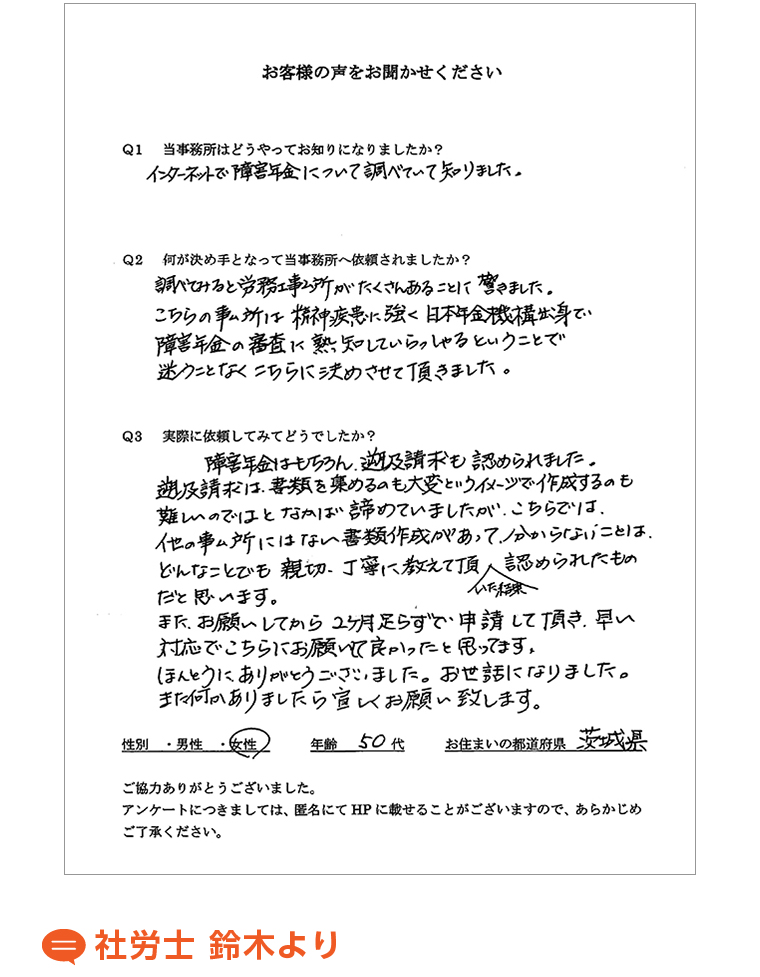 お客様の声をお聞かせください
Q1 当事務所はどうやってお知りになりましたか？
インターネットで障害年金について調べていて知りました。
Q2 何が決め手となって当事務所へ依頼されましたか？
調べてみると労務士事ム所がたくさんあることに驚きました。
こちらの事ム所は精神疾患に強く日本年金機構出身で
障害年金の審査に熟知していらっしゃるということで
迷うことなくこちらに決めさせて頂きました。
Q3 実際に依頼してみてどうでしたか？
障害年金はもちろん、遡及請求も認められました。
遡及請求は、書類を集めるのも大変というイメージで作成するのも
難しいのではとなかば諦めていましたが、こちらでは、
他の事ム所にはない書類作成があって、分からないことは、
どんなことでも親切、丁寧に教えて頂いた結果認められたもの
だと思います。
また、お願いしてから2ヶ月足らずで申請して頂き、早い
対応でこちらにお願いして良かったと思ってます。
ほんとうにありがとうございました。お世話になりました。
また何かありましたら宜しくお願い致します。
性別 ・男性 ・女性 年齢 50代 お住まいの都道府県 茨城県
ご協力ありがとうございました。
アンケートにつきましては、匿名にてHPに載せることがございますので、あらかじめ
ご了承ください。
社労士 鈴木より